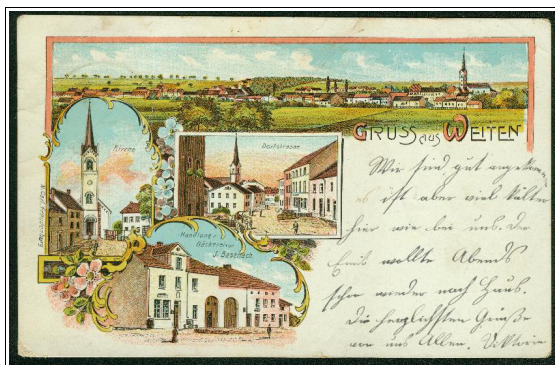 Gruss aus Weiten
Kirche
Dorfstrasse
Handlung u.
Bäckerei von
Wir sind gut angekom-
es ist aber viel kälter
hier wie bei uns. Der
Emil wollte Abends
schon wieder nach Haus.
Die herzlichsten Grüße
von uns Allen. Viktoria